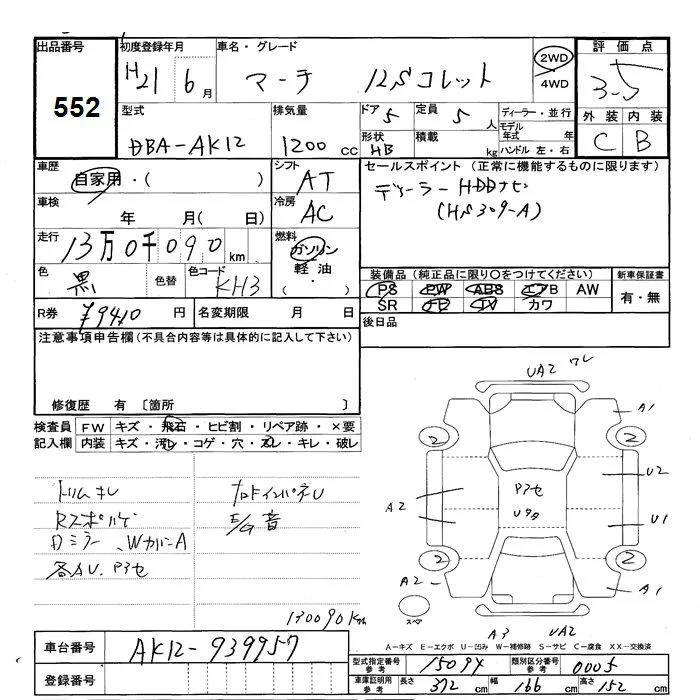 出品番号 初度登録年月 車名・グレード 評価点
552 H21 6月 マーチ 12Sコレット 2WD 4WD 3-5
型式 排気量 ドア 5 定員 5人 ディーラー・並行 外装 内装
DBA-AK12 1200cc 形状 HB 積載 kg モデル年式 年 ハンドル 左・右 C B
車歴 自家用・( ) シフト AT セールスポイント (正常に機能するものに限ります)
ディーラーHDDナビ
(HS309-A)
車検 年 月( 日) 冷房 AC
走行 13万0千090km 燃料 ガソリン 軽油・
色 黒 色替 色コード KH3 装備品 (純正品に限り○をつけてください) 新車保証書
PS PW ABS エアB AW 有・無
SR TV カワ
R券 ¥9410円 名変期限 月 日 後日品
注意事項申告欄(不具合内容等は具体的に記入して下さい)
修復歴 有 〔箇所 〕
検査員記入欄 FW キズ・飛石・ヒビ割・リペア跡・×要
内装 キズ・汚レ・コゲ・穴・スレ・キレ・破レ
トリムキレ
Dミラー、WカバーA
各AU.P3セ
E/G音
130090Km
UA2 ワレ
A1
2 2
A2 P3セ U2
U1
2 2
A2 A1
スペア
A3 UA2
A－キズ E－エクボ U－凹み W－補修跡 S－サビ C－腐食 XX－交換済
車台番号 AK12-939957
登録番号
型式指定番号 参考 15094 類別区分番号 参考 0005
車庫証明用 参考 長さ 372 幅 166 高さ 152